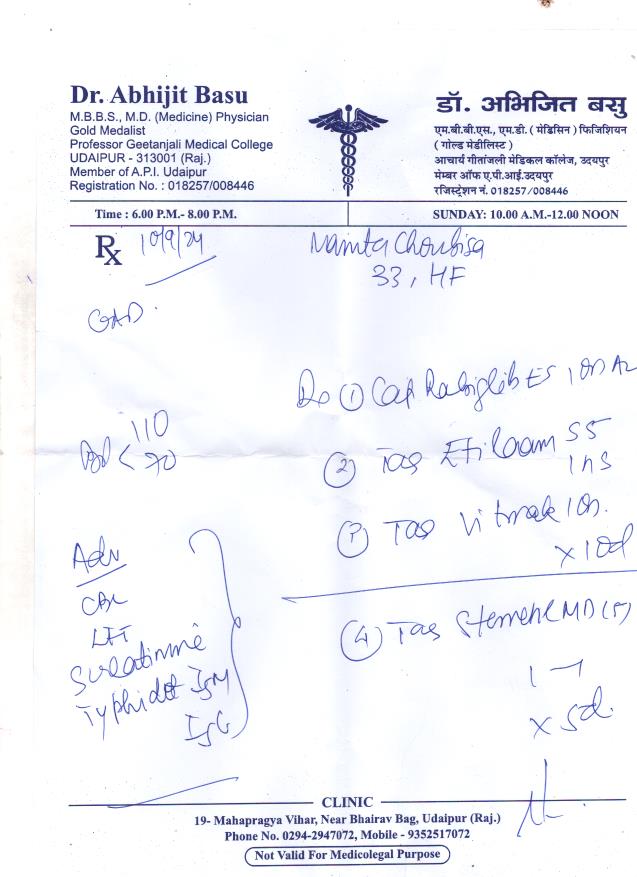 Dr. Abhijit Basu
M.B.B.S., M.D. (Medicine) Physician
Gold Medalist
Professor Geetanjali Medical College
UDAIPUR - 313001 (Raj.)
Member of A.P.I. Udaipur
Registration No. : 018257/008446
डॉ. अभिजित बसु
एम.बी.बी.एस., एम.डी. ( मेडिसिन ) फिजिशियन
( गोल्ड मेडीलिस्ट )
आचार्य गीतांजली मेडिकल कॉलेज, उदयपुर
मेम्बर ऑफ ए.पी.आई.उदयपुर
रजिस्ट्रेशन नं. 018257/008446
Time : 6.00 P.M.- 8.00 P.M.
SUNDAY: 10.00 A.M.-12.00 NOON
Rx 10/9/24
Namta Choubisa
33, HF
GAD
110
70
Adv
CBC
LFT
S creatinine
Typhidot IgM
IgG
① Cap 1 OD
② Tab Etilaam
1 HS
Tab 1 OD
x 10d
④ Tab Stemetil MD (5)
x 5d.
CLINIC
19- Mahapragya Vihar, Near Bhairav Bag, Udaipur (Raj.)
Phone No. 0294-2947072, Mobile - 9352517072
Not Valid For Medicolegal Purpose